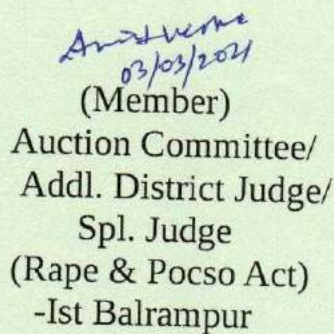 03/03/2021
(Member)
Auction Committee/
Addl. District Judge/
Spl. Judge
(Rape & Pocso Act)
-Ist Balrampur